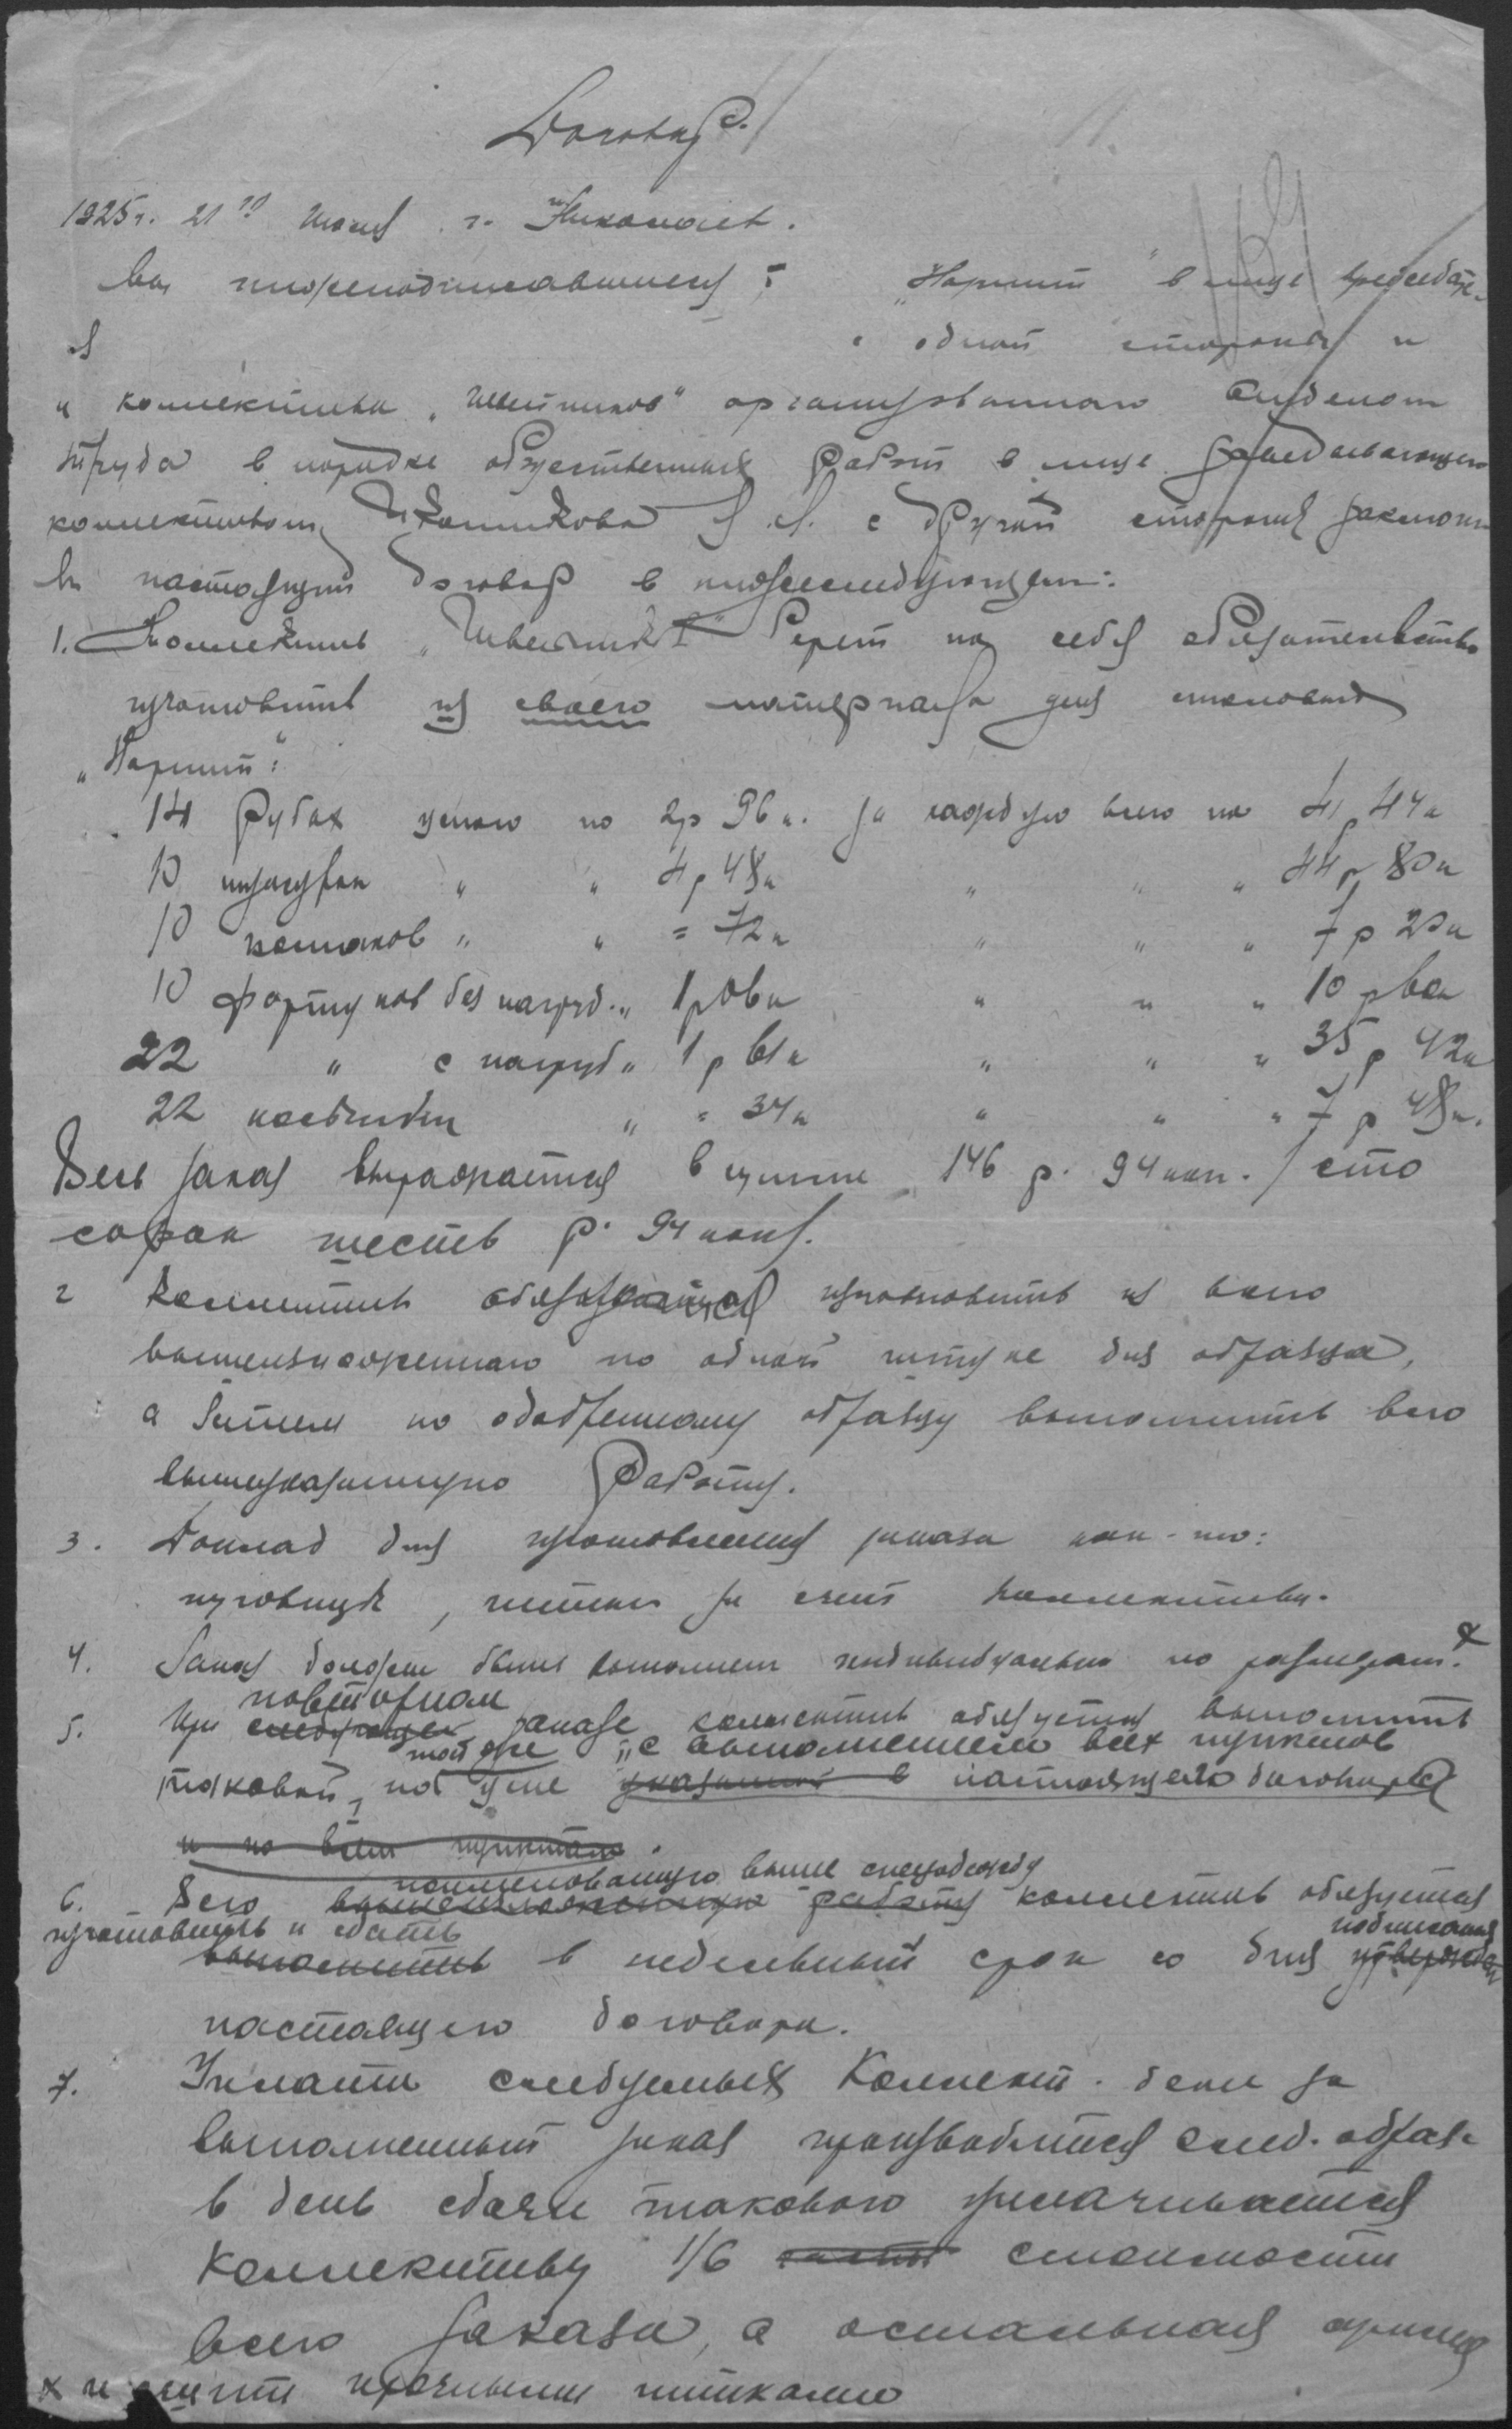 Договор.
1925 г. 21го Июля г. Николаев.
Мы нижеподписавшиеся: "Нарпит" в лице председате-
я с одной стороны и
и коллектива "Швейников" организованного Отделом
труда в порядке общественных работ в лице заведывающего
коллективом Школьникова с другой стороны заключи-
ли настоящий договор в нижеследующем:
1. Коллектив "Швейников" берет на себя обязательство
изготовить из своего материала для столовых
"Нарпит":
14 рубах ценою по 2 р 96 к. за каждую всего на 41 р 44 к
10 " " 4 р 48 к " " " 44 р 80 к
10 колпаков " " = 72 к " " " 7 р 20 к
10 фартуков без нагруд. " 1 р 06 к " " " 10 р 60 к
22 " с нагруд " 1 р 61 к " " " 35 р 42 к
22 " = 34 к " " " 7 р 48 к.
Весь заказ выражается в сумме 146 р. 94 коп. / сто
сорок шесть р. 94 коп/.
2 Коллектив обязуется изготовить из всего
вышеизложенного по одной штуке для образца,
а затем по одобренному образцу выполнить всю
вышеуказанную работу.
3. Доклад для изготовления заказа как-то:
пуговицы, нитки за счет коллектива.
4. Заказ должен быть выполнен индивидуально по размерам. х
повторном
5. При следующем заказе коллектив обязуется выполнить
той же "с выполнением всех пунктов
таковой, по цене указанной в настоящего договора
и по всем пунктам.
наименованную выше спецодежду
6. Всю вышеизложенную работу коллектив обязуется
изготовить и сдать подписания
выполнить в недельный срок со дня утвержден
настоящего договора.
7. Уплата следуемых Коллект. денег за
выполненный заказ производится след. образ.
в день сдачи такового уплачивается
Коллективу 1/6 части стоимости
всего заказа, а остальная сумма
х и прочными нитками